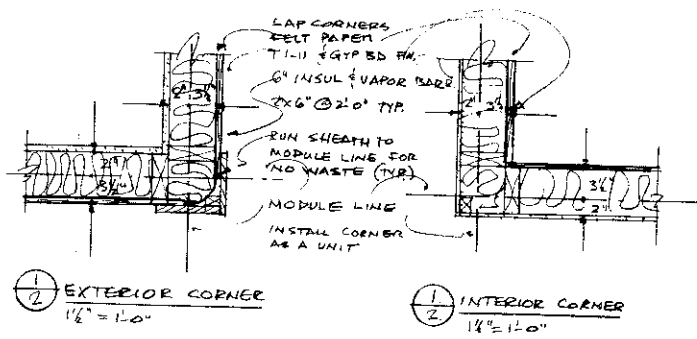 LAP CORNERS
FELT PAPER
T 1-11 & GYP BD FIN.
6" INSUL & VAPOR BARR.
2X6" @ 2'0" TYP.
RUN SHEATH TO
MODULE LINE FOR
NO WASTE (TYP.)
MODULE LINE
INSTALL CORNER
AS A UNIT
2" 3½"
2"
3½"
2" 3½"
3½"
2"
1
2
EXTERIOR CORNER
1½" = 1'-0"
1
2
INTERIOR CORNER
1½" = 1'-0"